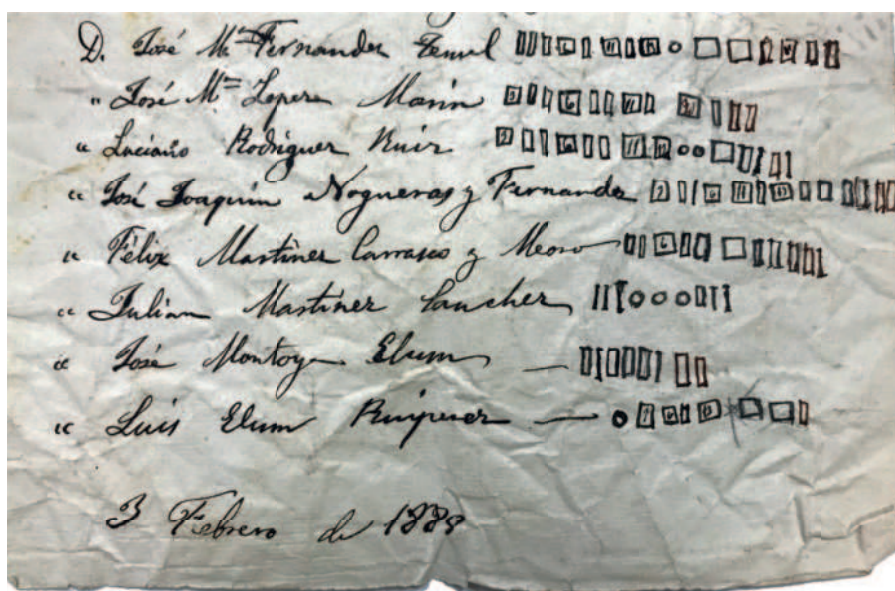 D. José Mª Fernandez
" José Mª Lopera Marin
" Luciano Rodriguez Ruiz
" José Joaquin Nogueras y Fernandez
" Félix Martinez Carrasco y
" Julian Martinez Sanchez
" José Montoya Elum
" Luis Elum Ruiperez
3 Febrero de